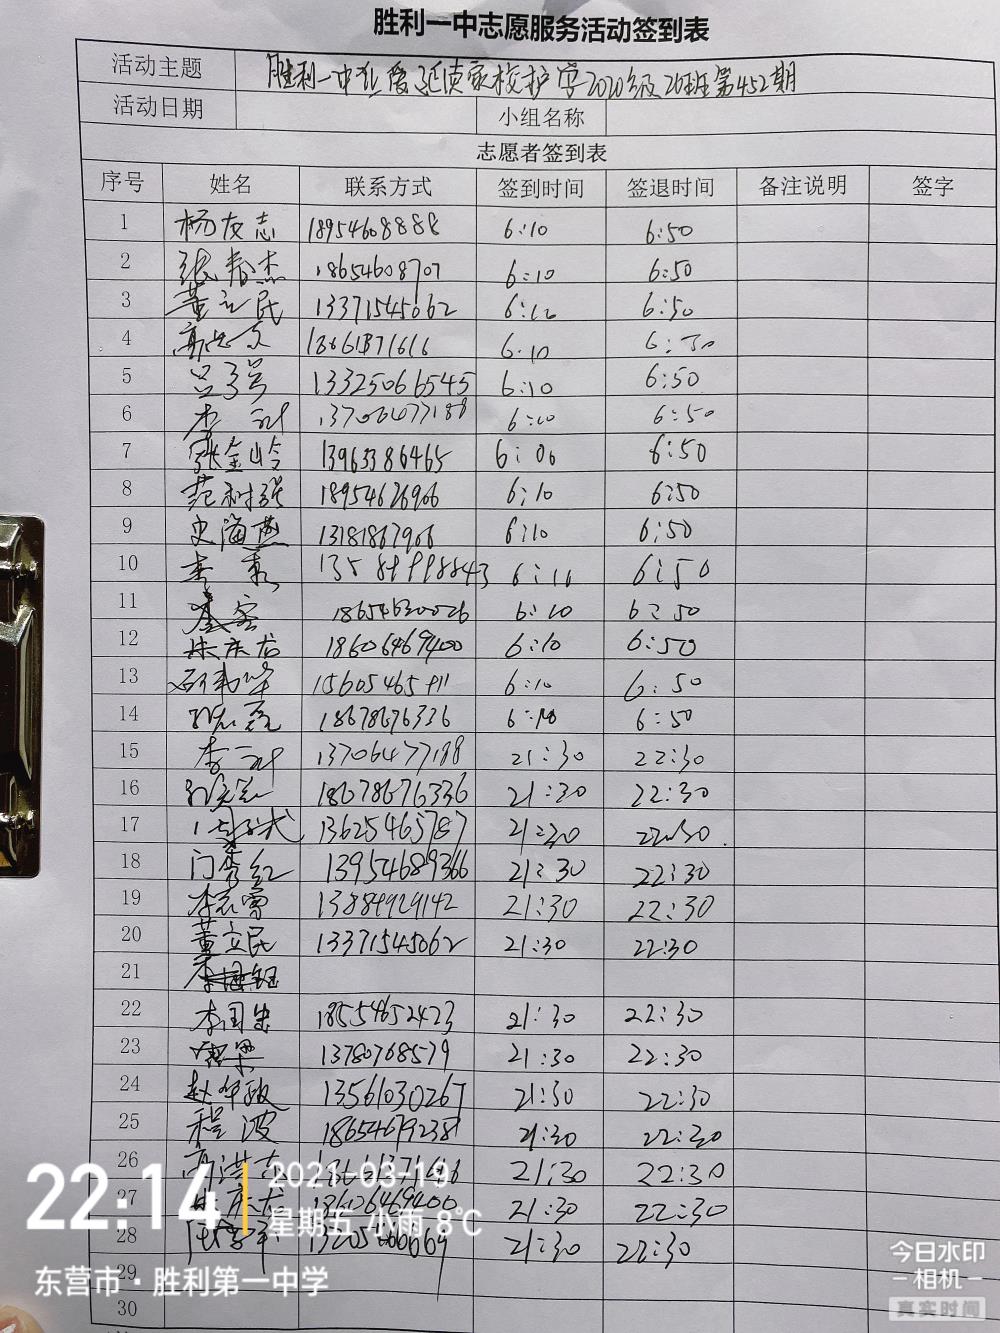 胜利一中志愿服务活动签到表
活动主题 胜利一中 家校护学2020级20班第452期
活动日期 小组名称
志愿者签到表
序号 姓名 联系方式 签到时间 签退时间 备注说明 签字
1 杨友志 18954608888 6:10 6:50
2 张春杰 18654608707 6:10 6:50
3 董立民 13371545062 6:10 6:50
4 6:10 6:50
5 13325066545 6:10 6:50
6 李 6:10 6:50
7 张金岭 13963386465 6:06 6:50
8 范树强 18954626966 6:10 6:50
9 史海燕 13181867966 6:10 6:50
10 6:10 6:50
11 18654630026 6:10 6:50
12 朱庆龙 18606469400 6:10 6:50
13 6:10 6:50
14 18678676336 6:10 6:50
15 李 13706477188 21:30 22:30
16 18678676336 21:30 22:30
17 13625465787 21:30 22:30
18 门秀红 13954689366 21:30 22:30
19 13884929142 21:30 22:30
20 董立民 13371545062 21:30 22:30
21
22 李国忠 18554652423 21:30 22:30
23 13780768579 21:30 22:30
24 赵华敏 13561030267 21:30 22:30
25 程波 18654679238 21:30 22:30
26 21:30 22:30
27 朱庆龙 21:30 22:30
28 21:30 22:30
29
30
22:14
2021-03-19
星期五 小雨 8℃
东营市·胜利第一中学
今日水印
相机
真实时间